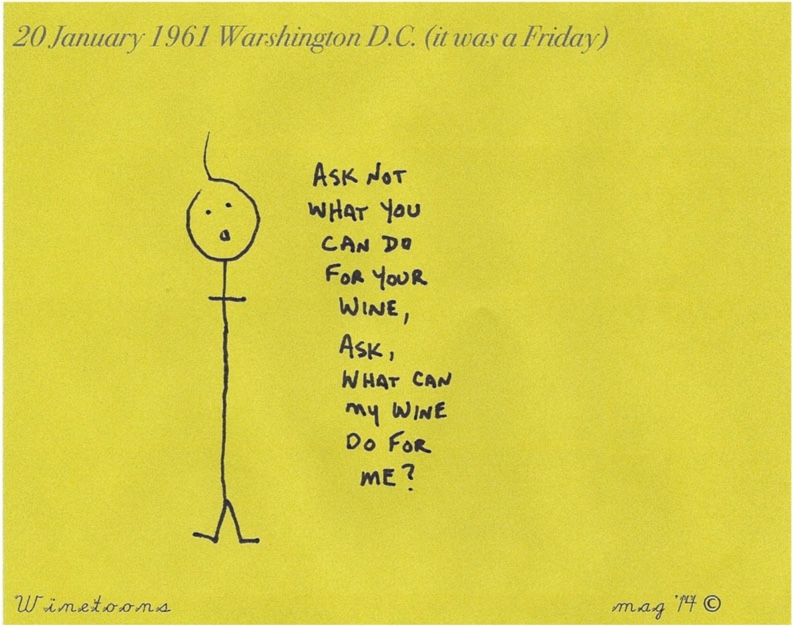 20 January 1961 Warshington D.C. (it was a Friday)
ASK NOT
WHAT YOU
CAN DO
FOR YOUR
WINE,
ASK,
WHAT CAN
MY WINE
DO FOR
ME?
Winetoons
mag '14 ©